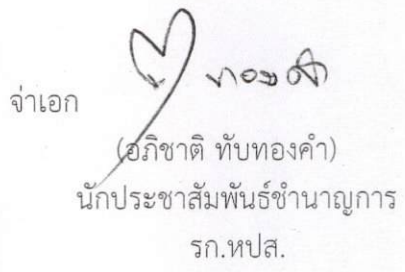 จ่าเอก
(อภิชาติ ทับทองคำ)
นักประชาสัมพันธ์ชำนาญการ
รก.หปส.